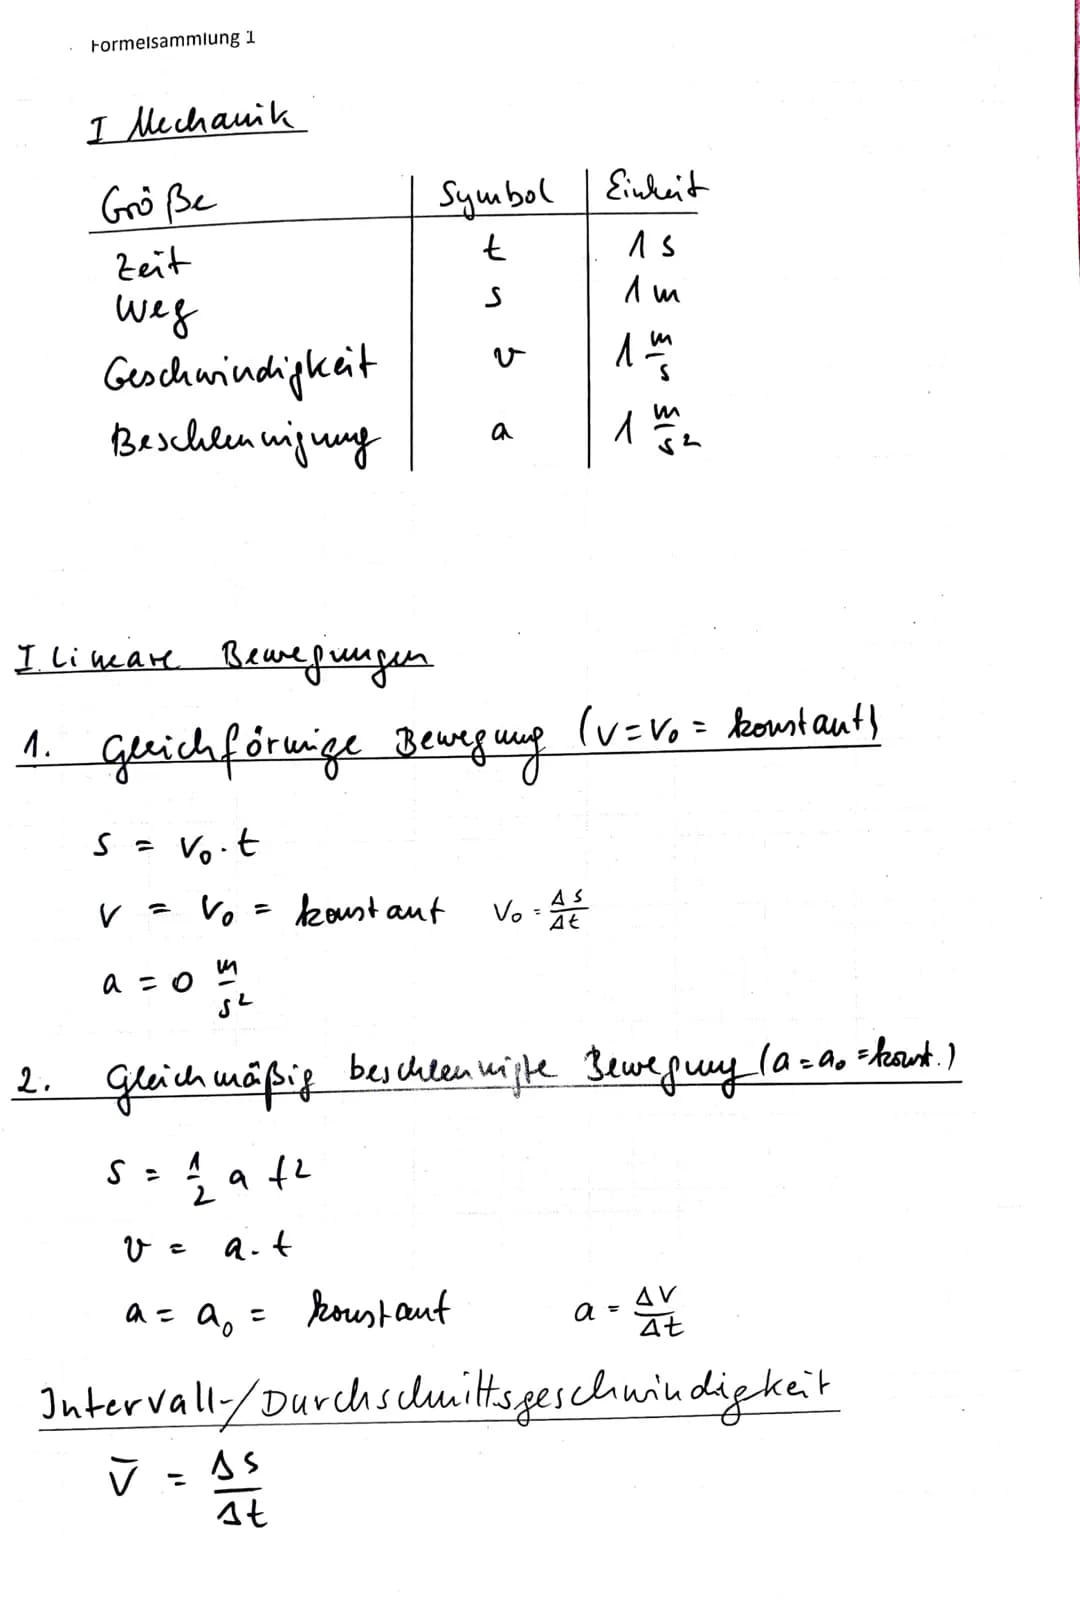 Formelsammlung 1
I Mechanik
Größe Symbol Einheit
Zeit t 1 s
Weg s 1 m
Geschwindigkeit v 1 m/s
Beschleunigung a 1 m/s²
I. Lineare Bewegungen
1. Gleichförmige Bewegung (v = v₀ = konstant)
s = v₀ · t
v = v₀ = konstant v₀ = Δs/Δt
a = 0 m/s²
2. Gleichmäßig beschleunigte Bewegung (a = a₀ = konst.)
s = 1/2 a t²
v = a · t
a = a₀ = konstant a = Δv/Δt
Intervall-/Durchschnittsgeschwindigkeit
v̄ = Δs/Δt